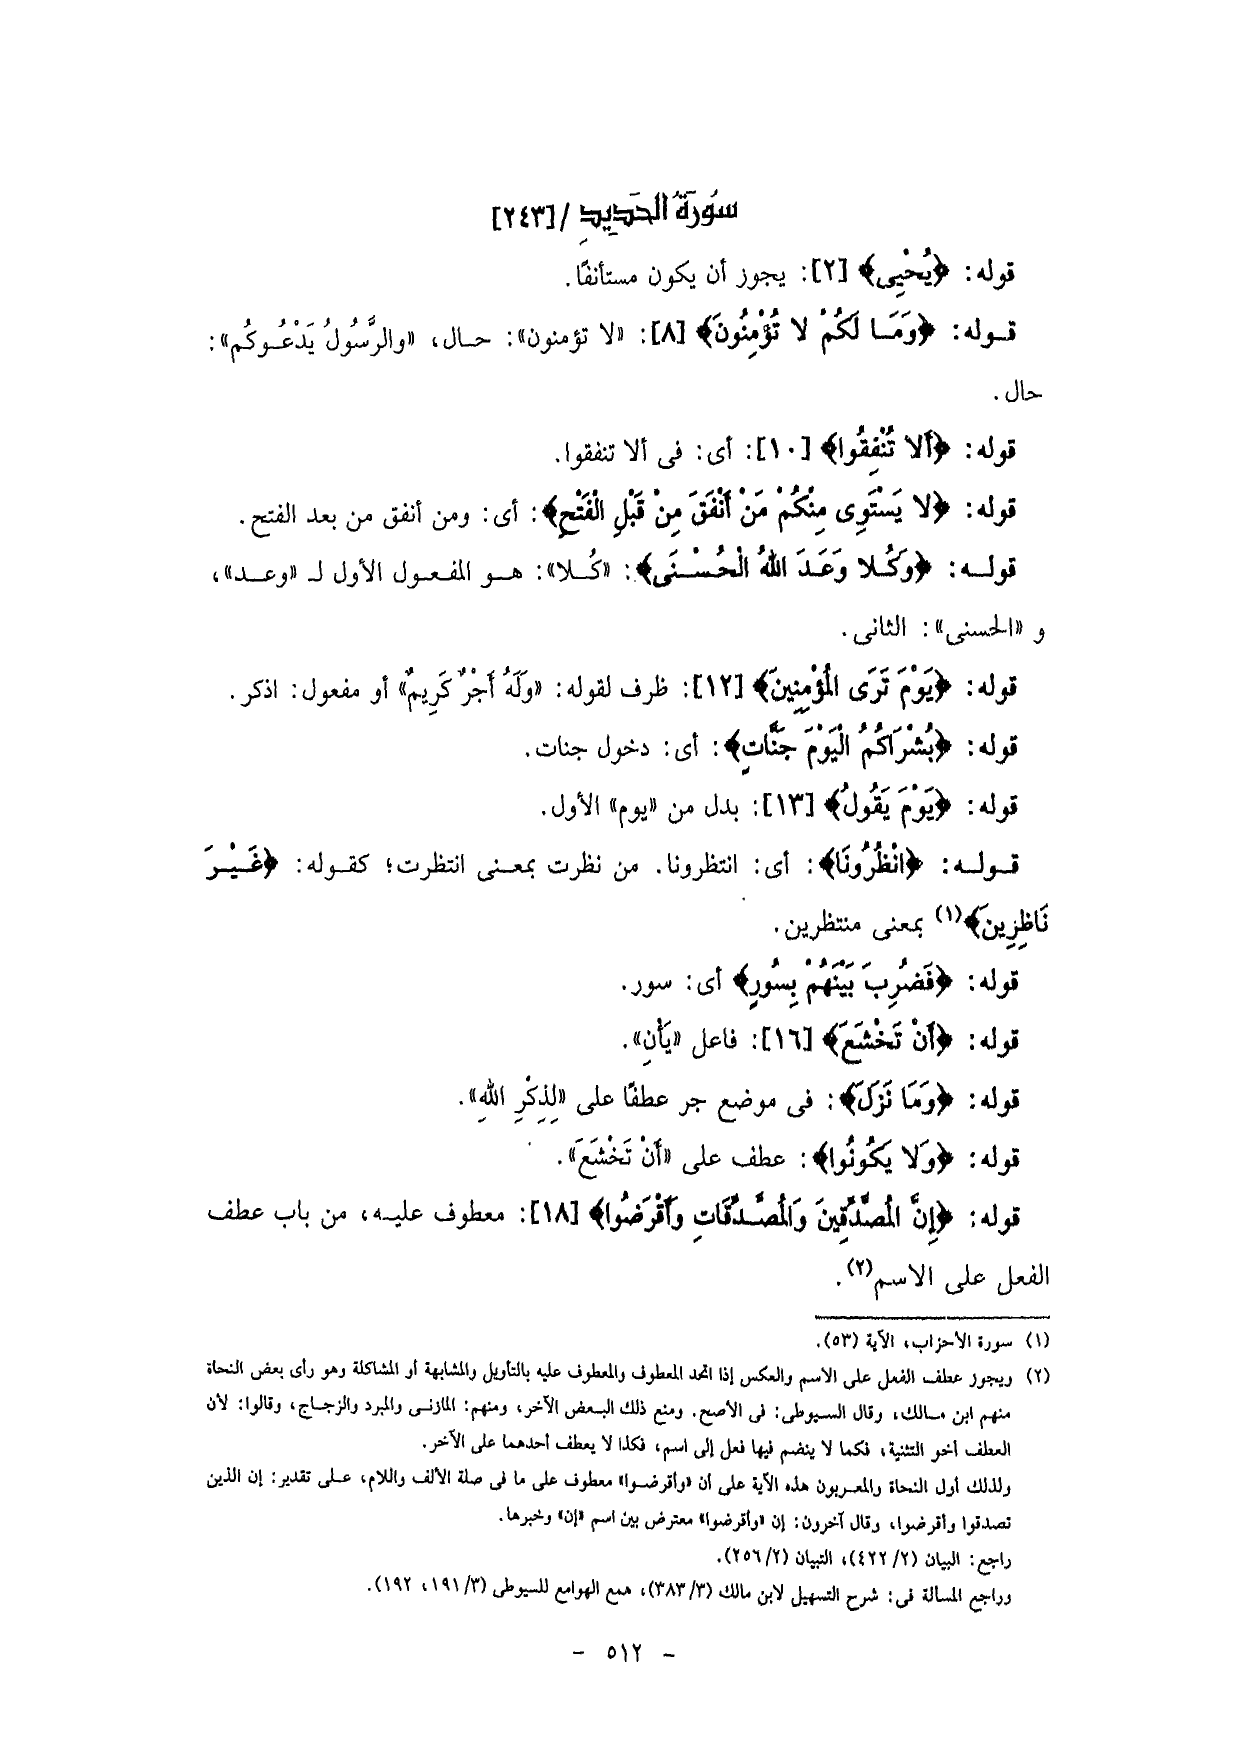 سُورَةُ الحَدِيدِ /[٢٤٣]
قوله: ﴿يُحْيِى﴾ [٢]: يجوز أن يكون مستأنفًا.
قوله: ﴿وَمَا لَكُمْ لا تُؤْمِنُونَ﴾ [٨]: «لا تؤمنون»: حال، «والرَّسُولُ يَدْعُوكُم»:
حال.
قوله: ﴿أَلا تُنْفِقُوا﴾ [١٠]: أى: فى ألا تنفقوا.
قوله: ﴿لا يَسْتَوِى مِنْكُمْ مَنْ أَنْفَقَ مِنْ قَبْلِ الْفَتْحِ﴾: أى: ومن أنفق من بعد الفتح.
قوله: ﴿وَكُلا وَعَدَ اللهُ الْحُسْنَى﴾: «كُلا»: هو المفعول الأول لـ «وعد»،
و «الحسنى»: الثانى.
قوله: ﴿يَوْمَ تَرَى الْمُؤْمِنِينَ﴾ [١٢]: ظرف لقوله: «وَلَهُ أَجْرٌ كَرِيمٌ» أو مفعول: اذكر.
قوله: ﴿بُشْرَاكُمُ الْيَوْمَ جَنَّاتٍ﴾: أى: دخول جنات.
قوله: ﴿يَوْمَ يَقُولُ﴾ [١٣]: بدل من «يوم» الأول.
قوله: ﴿انْظُرُونَا﴾: أى: انتظرونا. من نظرت بمعنى انتظرت؛ كقوله: ﴿غَيْرَ
نَاظِرِينَ﴾(١) بمعنى منتظرين.
قوله: ﴿فَضُرِبَ بَيْنَهُمْ بِسُورٍ﴾ أى: سور.
قوله: ﴿أَنْ تَخْشَعَ﴾ [١٦]: فاعل «يَأْنِ».
قوله: ﴿وَمَا نَزَلَ﴾: فى موضع جر عطفًا على «لِذِكْرِ اللهِ».
قوله: ﴿وَلا يَكُونُوا﴾: عطف على «أَنْ تَخْشَعَ».
قوله: ﴿إِنَّ الْمُصَّدِّقِينَ وَالْمُصَّدِّقَاتِ وَأَقْرَضُوا﴾ [١٨]: معطوف عليه، من باب عطف
الفعل على الاسم(٢).
(١) سورة الأحزاب، الآية (٥٣).
(٢) ويجوز عطف الفعل على الاسم والعكس إذا اتحد المعطوف والمعطوف عليه بالتأويل والمشابهة أو المشاكلة وهو رأى بعض النحاة
منهم ابن مالك، وقال السيوطى: فى الأصح. ومنع ذلك البعض الآخر، ومنهم: المازنى والمبرد والزجاج، وقالوا: لأن
العطف أخو التثنية، فكما لا ينضم فيها فعل إلى اسم، فكذا لا يعطف أحدهما على الآخر.
ولذلك أول النحاة والمعربون هذه الآية على أن «وأقرضوا» معطوف على ما فى صلة الألف واللام، على تقدير: إن الذين
تصدقوا وأقرضوا، وقال آخرون: إن «وأقرضوا» معترض بين اسم «إن» وخبرها.
راجع: البيان (٤٢٢/٢)، التبيان (٢٥٦/٢).
وراجع المسألة فى: شرح التسهيل لابن مالك (٣٨٣/٣)، همع الهوامع للسيوطى (١٩١/٣، ١٩٢).
- ٥١٢ -